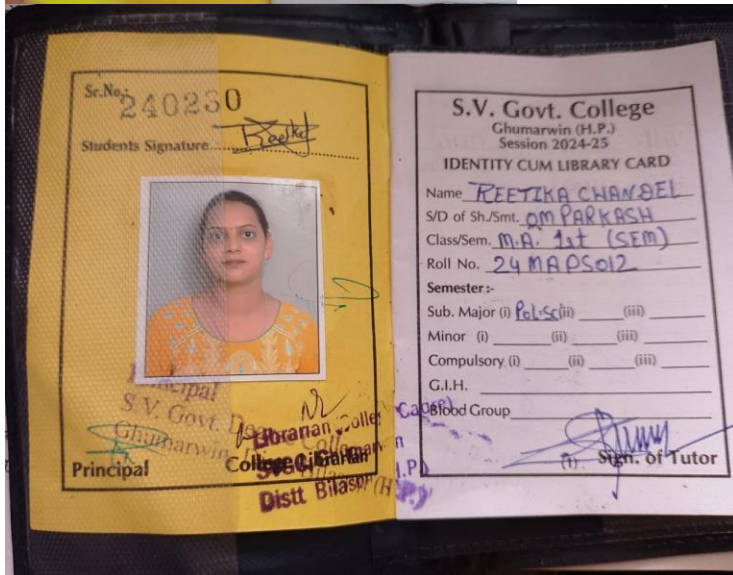 Sr.No.: 240230
Students Signature Reetika
Principal
S.V. Govt.
Ghumarwin
Librarian
Principal
College Librarian
Distt Bilaspur (H.P.)
S.V. Govt. College
Ghumarwin (H.P.)
Session 2024-25
IDENTITY CUM LIBRARY CARD
Name REETIKA CHANDEL
S/D of Sh./Smt. OM PARKASH
Class/Sem. M.A. 1st (SEM)
Roll No. 24MAPS012
Semester:-
Sub. Major (i) Pol.Sc (ii) (iii)
Minor (i) (ii) (iii)
Compulsory (i) (ii) (iii)
G.I.H.
Blood Group
Sign. of Tutor